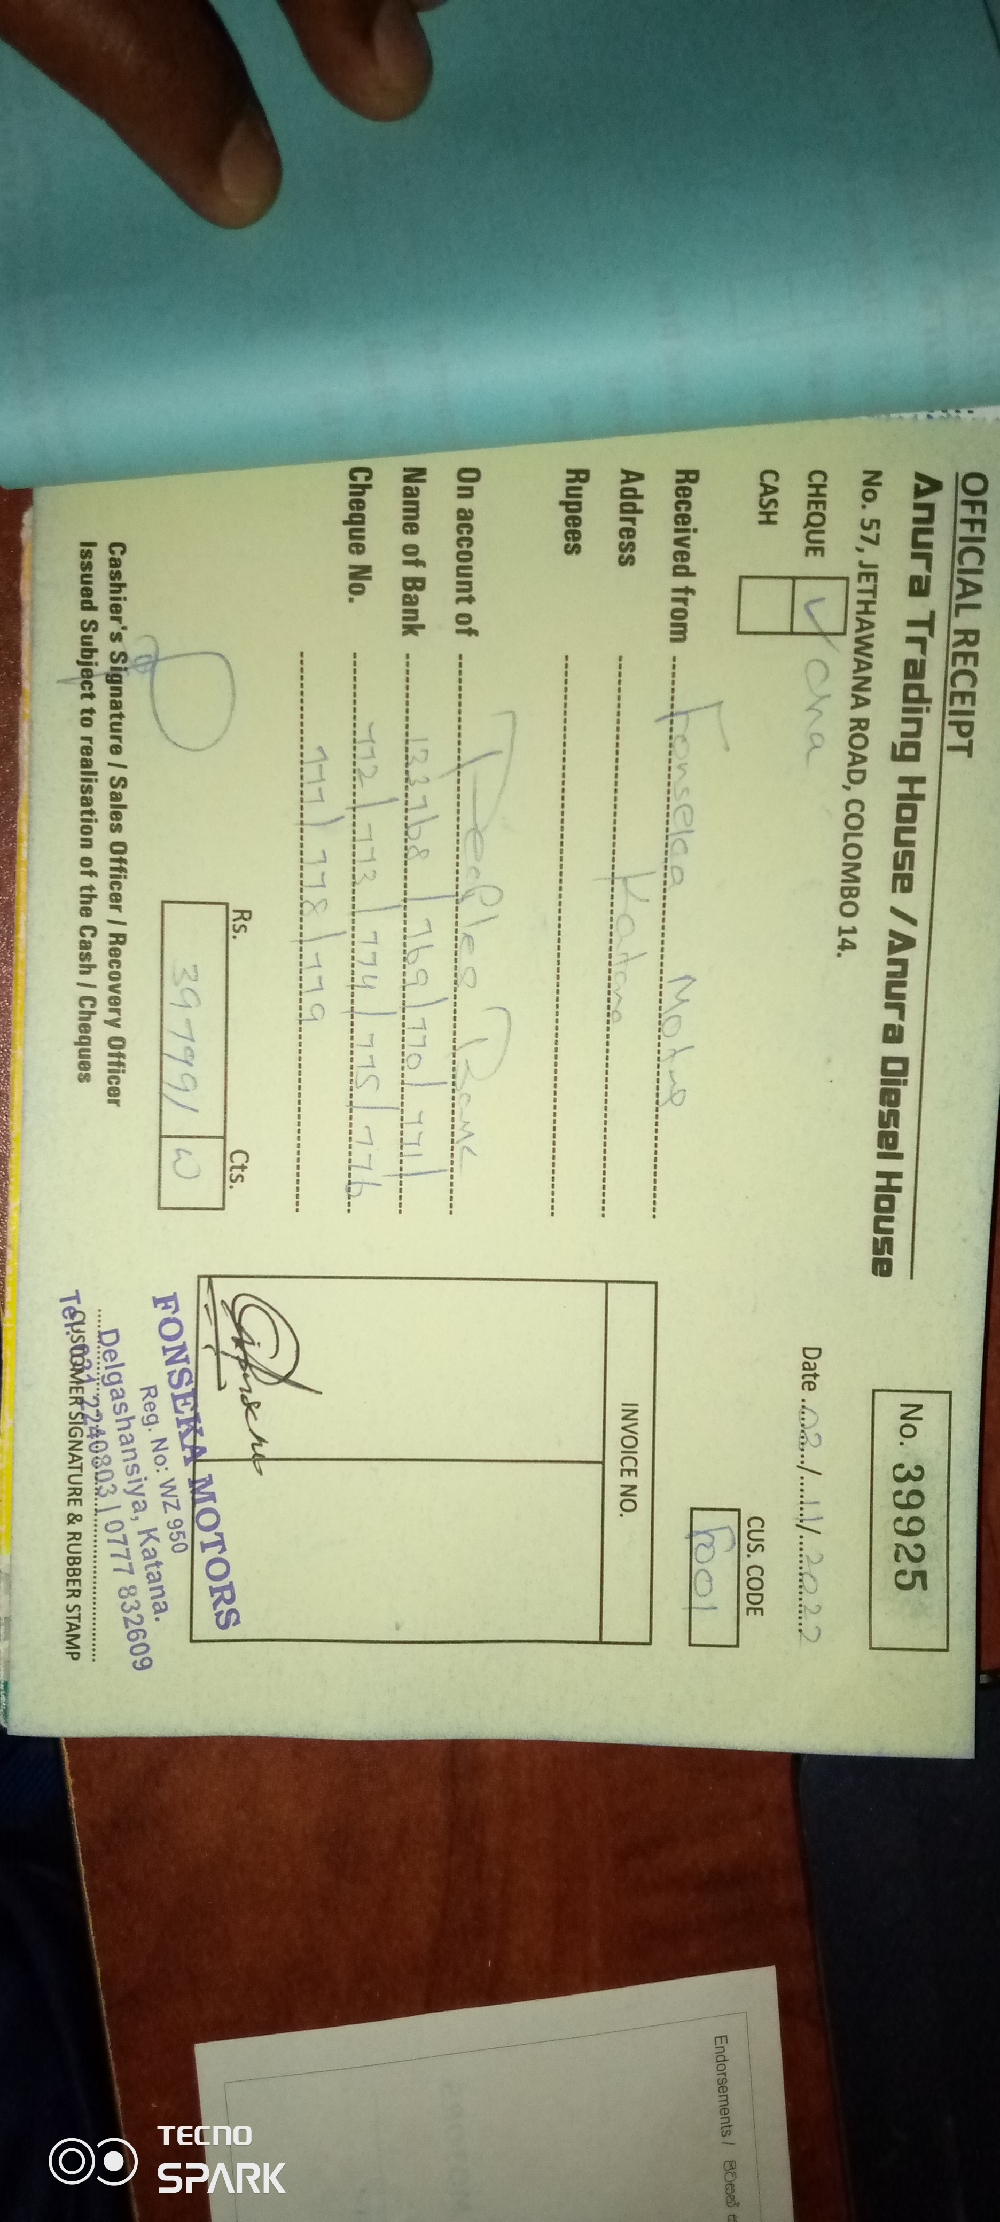 OFFICIAL RECEIPT
Anura Trading House / Anura Diesel House
No. 57, JETHAWANA ROAD, COLOMBO 14.
No. 39925
CHEQUE ✓
CASH
Date 02/11/2022
CUS. CODE
F001
Received from Fonseka Motors
Address Katana
Rupees
On account of
Name of Bank 133768/769/770/771/
Cheque No. 772/773/774/775/776
777/778/779
INVOICE NO.
Rs. Cts.
Cashier's Signature / Sales Officer / Recovery Officer
Issued Subject to realisation of the Cash / Cheques
FONSEKA MOTORS
Reg. No: WZ 950
Delgashansiya, Katana.
Tel: 031 2240803 | 0777 832609
CUSTOMER SIGNATURE & RUBBER STAMP
Endorsements /
TECNO
SPARK